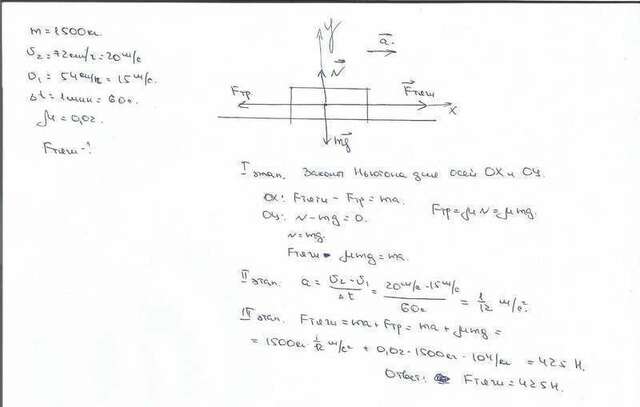 m = 1500кг
υ₂ = 72км/ч = 20м/с
υ₁ = 54км/ч = 15м/с.
Δt = 1мин = 60с.
μ = 0,02.
Fтяги - ?
y
a⃗.
N⃗
Fтр
F⃗тяги
x
mg⃗
I этап. Законы Ньютона для осей OX и OY.
OX: Fтяги - Fтр = ma.
Fтр = μN = μmg.
OY: N - mg = 0.
N = mg.
Fтяги - μmg = ma.
II этап. a = (υ₂ - υ₁)/Δt = (20м/с - 15м/с)/60с = 1/12 м/с².
III этап. Fтяги = ma + Fтр = ma + μmg =
= 1500кг · 1/12 м/с² + 0,02 · 1500кг · 10Н/кг = 425 Н.
Ответ: Fтяги = 425Н.